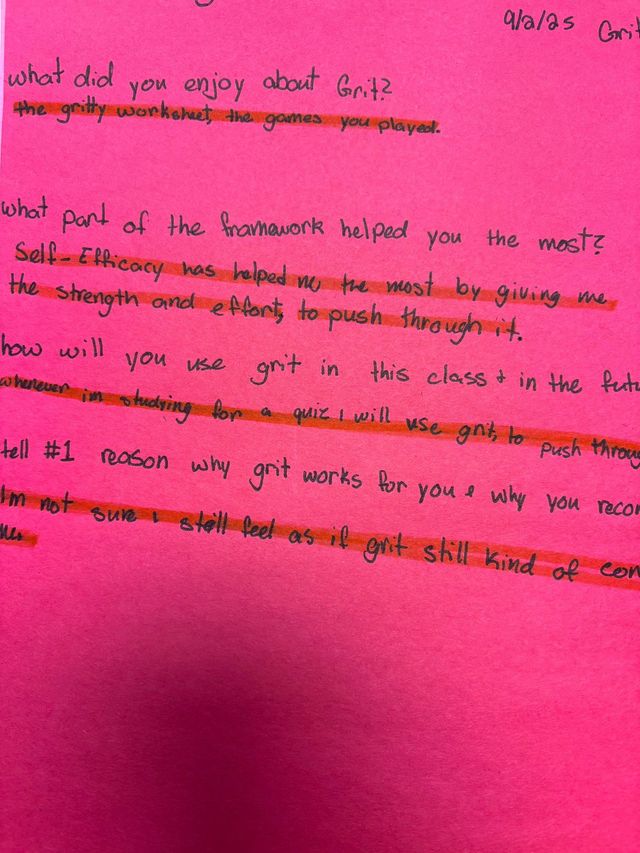 9/2/25 Grit
what did you enjoy about Grit?
the gritty worksheet, the games you played.
what part of the framework helped you the most?
Self-Efficacy has helped me the most by giving me
the strength and effort, to push through it.
how will you use grit in this class & in the futu
whenever im studying for a quiz i will use grit, to push throug
tell #1 reason why grit works for you & why you recom
I'm not sure i still feel as if grit still kind of con
me.